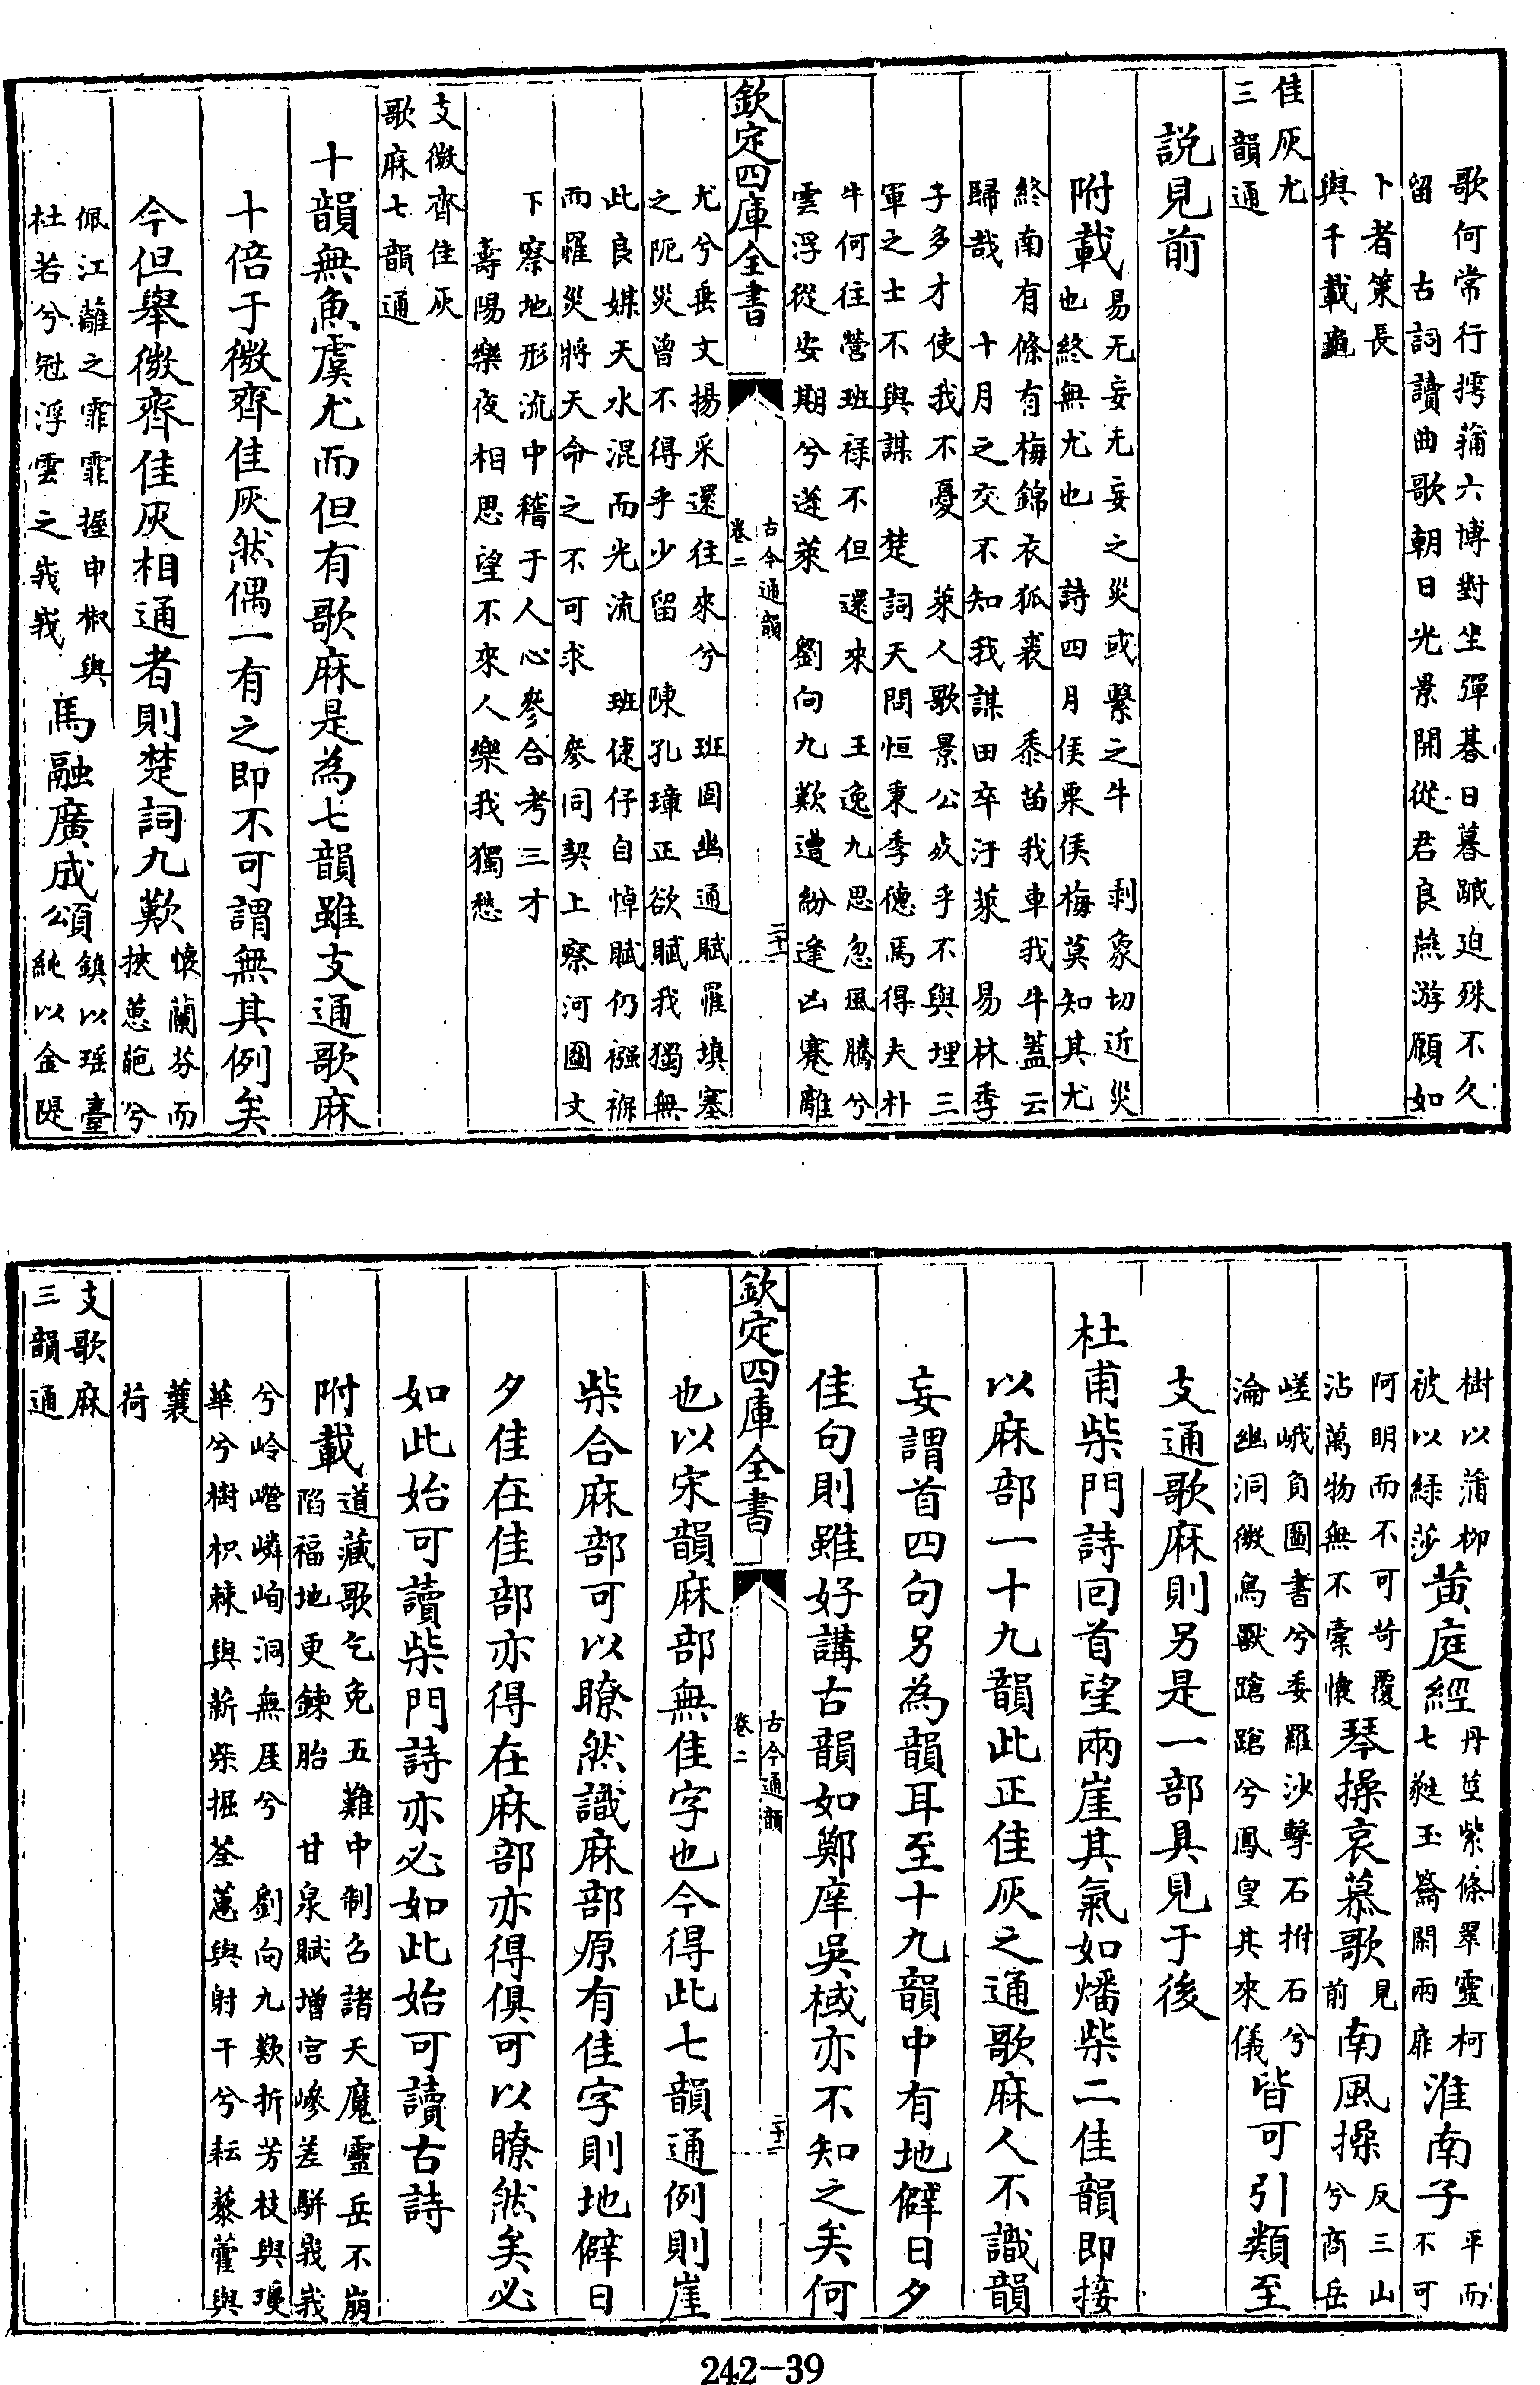 歌何常行摴蒱六博對坐彈碁日暮踧迫殊不久
留　古詞讀曲歌朝日光景開從君良燕游願如
卜者策長
與千載龜
佳灰尤
三韻通
說見前
附載
易无妄无妄之災或繫之牛　剥象切近災
也終無尤也　詩四月侯栗侯梅莫知其尤
終南有條有梅錦衣狐裘　黍苗我車我牛蓋云
歸哉　十月之交不知我謀田卒汙萊　易林季
子多才使我不憂　萊人歌景公死乎不與埋三
軍之士不與謀　楚詞天問恒秉季德焉得夫朴
牛何往營班禄不但還來　王逸九思忽風騰兮
雲浮從安期兮蓬萊　劉向九歎遭紛逢凶蹇離
欽定四庫全書
古今通韻
卷二
二十一
尤兮垂文揚采還往來兮　班固幽通賦罹填塞
之阨災曾不得乎少留　陳孔璋正欲賦我獨無
此良媒天水混而光流　班倢伃自悼賦仍襁褓
而罹災將天命之不可求　參同契上察河圖文
下察地形流中稽于人心參合考三才
壽陽樂夜相思望不來人樂我獨愁
支微齊佳灰
歌麻七韻通
十韻無魚虞尤而但有歌麻是為七韻雖支通歌麻
十倍于微齊佳灰然偶一有之即不可謂無其例矣
今但舉微齊佳灰相通者則楚詞九歎
懷蘭芬而
挾蕙葩兮
佩江蘺之霏霏握申椒與
杜若兮冠浮雲之峩峩
馬融廣成頌
鎮以瑶臺
純以金隄
樹以蒲柳
被以緑莎
黄庭經
丹莖紫條翠靈柯
七蕤玉籥閉兩扉
淮南子
平而
不可
阿明而不可苛覆
沾萬物無不橐懷
琴操哀慕歌
見
前
南風操
反三山
兮商岳
嵯峨負圖書兮委羅沙擊石拊石兮
淪幽洞微鳥獸蹌蹌兮鳳皇其來儀
皆可引類至
支通歌麻則另是一部具見于後
杜甫柴門詩回首望兩崖其氣如燔柴二佳韻即接
以麻部一十九韻此正佳灰之通歌麻人不識韻
妄謂首四句另為韻耳至十九韻中有地僻日夕
佳句則雖好講古韻如鄭庠吳棫亦不知之矣何
欽定四庫全書
古今通韻
卷二
二十二
也以宋韻麻部無佳字也今得此七韻通例則崖
柴合麻部可以瞭然識麻部原有佳字則地僻日
夕佳在佳部亦得在麻部亦得俱可以瞭然矣必
如此始可讀柴門詩亦必如此始可讀古詩
附載
道藏歌乞免五難中制召諸天魔靈岳不崩
陷福地更鍊胎　甘泉賦增宫㟥差駢嵯峩
兮岭巆嶙峋洞無厓兮　劉向九歎折芳枝與瓊
華兮樹枳棘與薪柴掘荃蕙與射干兮耘藜藿與
蘘
荷
支歌麻
三韻通
242—39